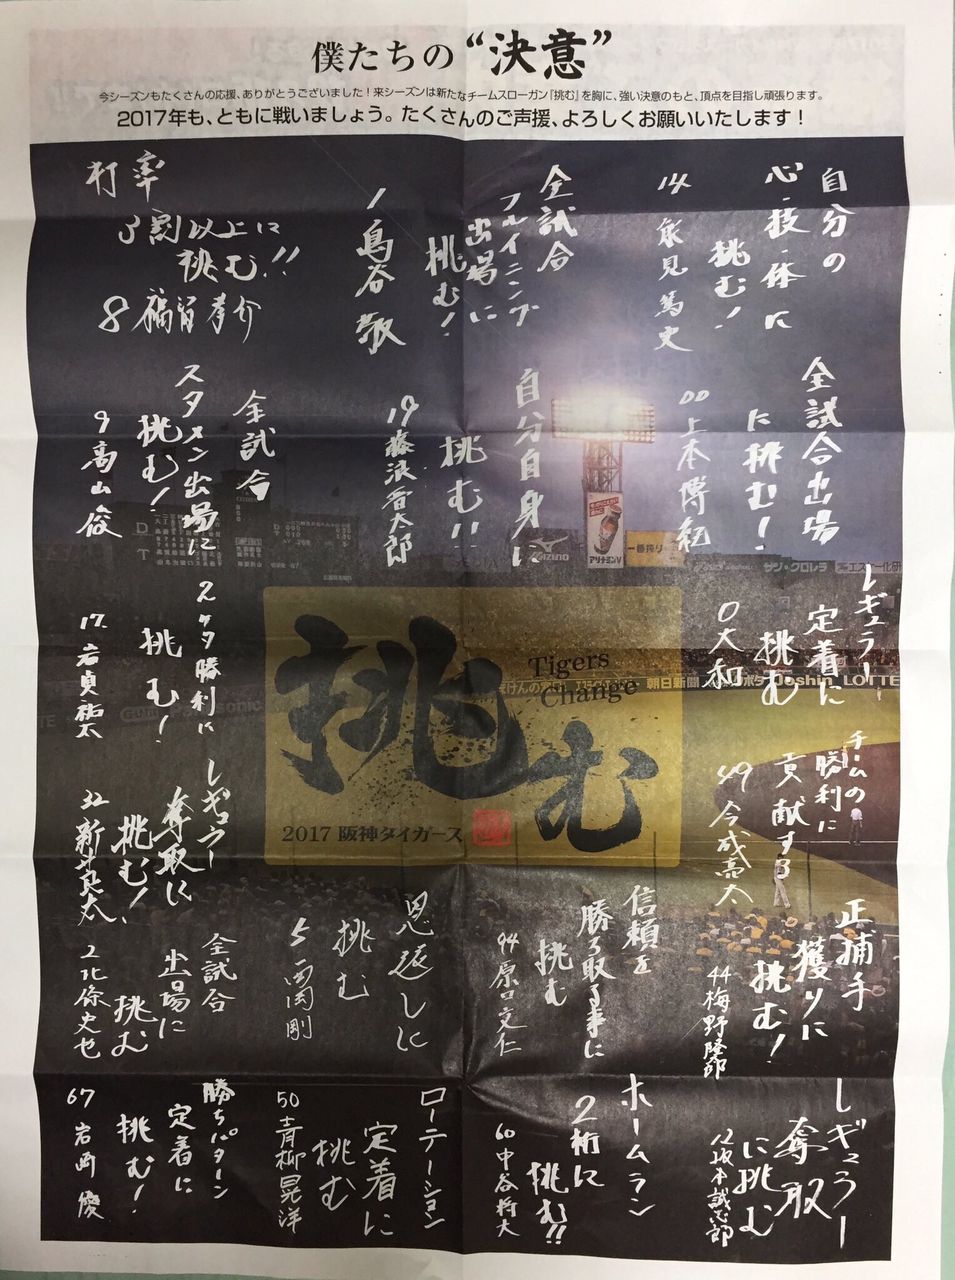 僕たちの“決意”
今シーズンもたくさんの応援、ありがとうございました！来シーズンは新たなチームスローガン『挑む』を胸に、強い決意のもと、頂点を目指し頑張ります。
2017年も、ともに戦いましょう。たくさんのご声援、よろしくお願いいたします！
自分の
心・技・体に
挑む！
14 能見篤史
全試合
フルイニング
出場に
挑む！
1 鳥谷敬
打率
3割以上に
挑む!!
8 福留孝介
全試合出場
に挑む！
00 上本博紀
自分自身に
挑む!!
19 藤浪晋太郎
全試合
スタメン出場に
挑む！
9 高山俊
レギュラー
定着に
挑む
0 大和
2ケタ勝利に
挑む！
17 岩貞祐太
チームの
勝利に
貢献する
49 今成亮太
レギュラー
奪取に
挑む！
32 新井良太
正捕手
獲りに
挑む！
44 梅野隆太郎
信頼を
勝ち取る事に
挑む
94 原口文仁
恩返しに
挑む
5 西岡剛
全試合
出場に
挑む
2 北條史也
レギュラー
奪取
に挑む
12 坂本誠志郎
ホームラン
2桁に
挑む!!
60 中谷将大
ローテーション
定着に
挑む
50 青柳晃洋
勝ちパターン
定着に
挑む！
67 岩崎優
挑む
Tigers
Change
2017 阪神タイガース
アリナミンV
MIZUNO
一番搾り
サン・クロレラ
朝日新聞
Joshin
LOTTE
Panasonic